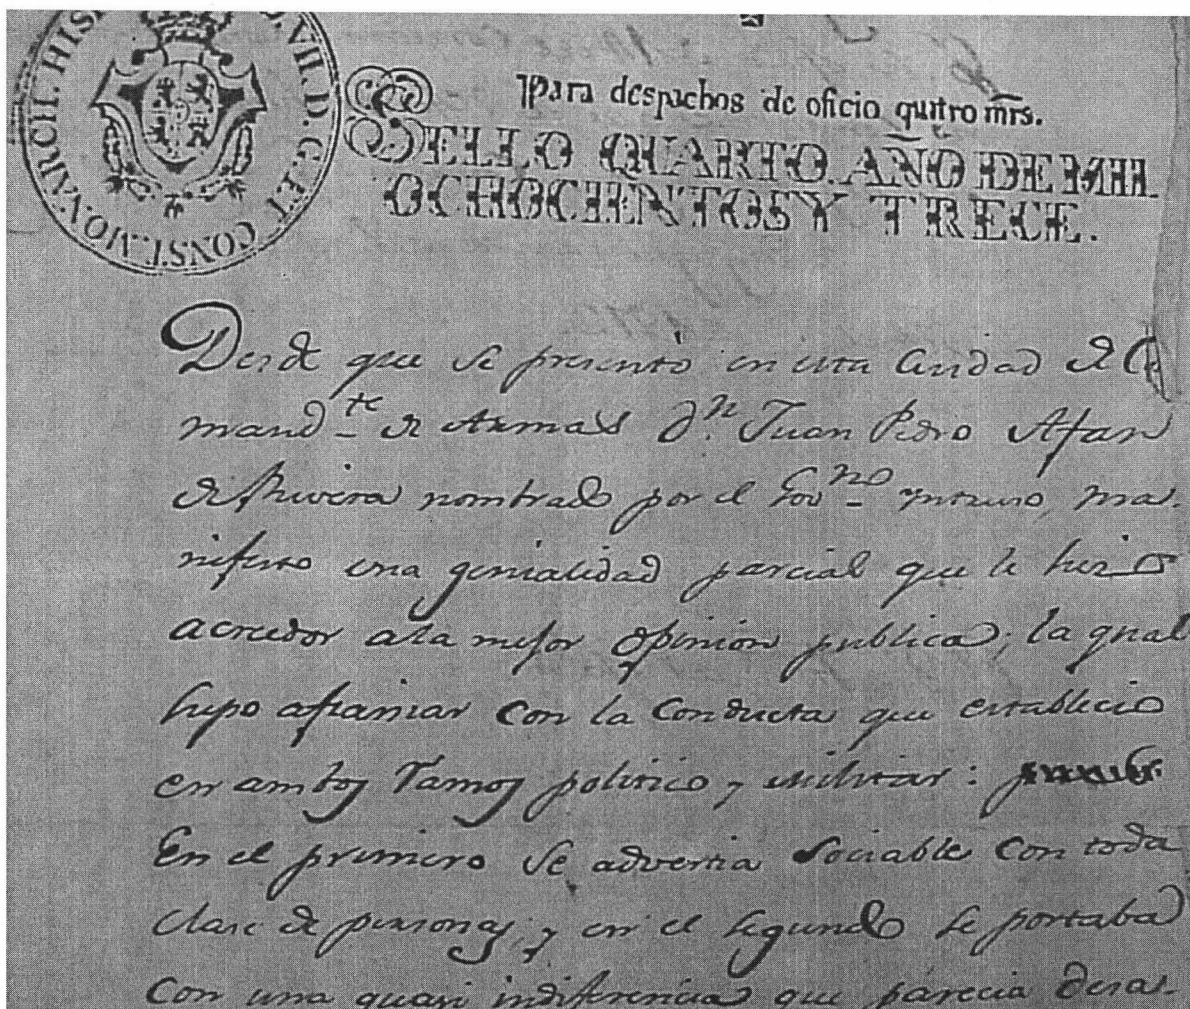 ARCH. HIS
VII. D. G. ET CONST. MON
Para despachos de oficio quatro mrs.
SELLO QUARTO. AÑO DE MIL
OCHOCIENTOS Y TRECE.
Desde que se presentò en esta Ciudad de Co
mand.te de Armas D.n Juan Pedro Afan
de Rivera nombrado por el Gov.no yntruso, ma-
nifesto una genialidad parcial que le hizo
acreedor a la mejor opinion publica; la qual
supo afianzar con la conducta que establecio
en ambos ramos politico y militar:
En el primero se advertia sociable con toda
clase de personas; y en el segundo se portaba
con una quasi indiferencia que parecia desa-